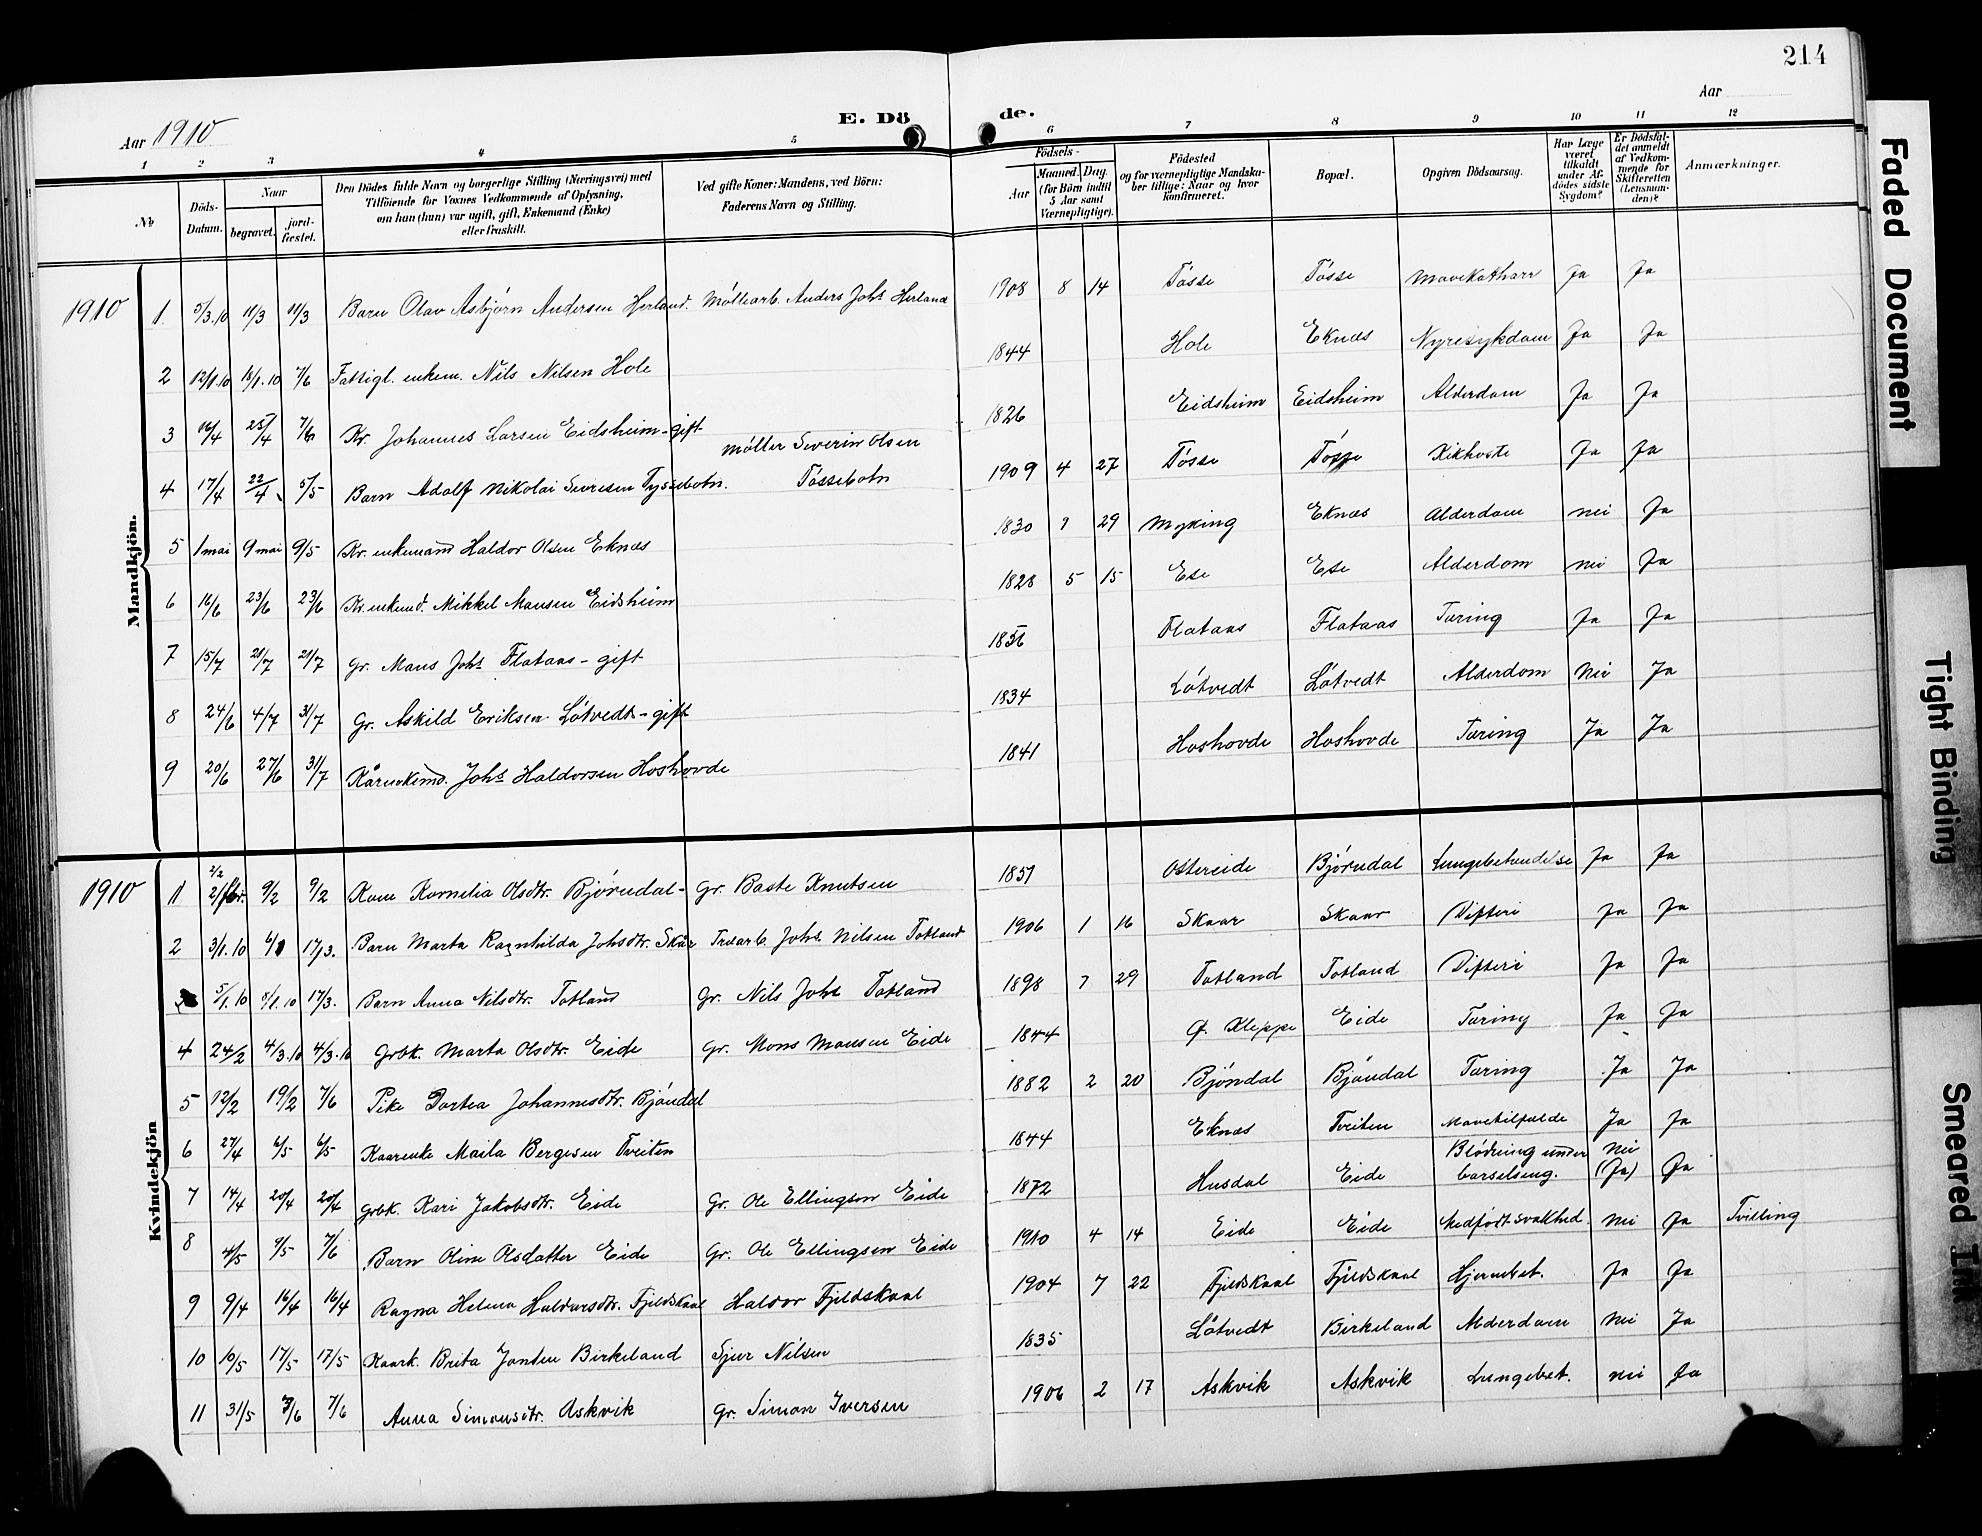 214
Aar 1910
E. Dö
de.
Aar
1 2 3 4 5 6 7 8 9 10 11 12
No
Döds-Datum.
Naar
begravet.
jord-fæstet.
Den Dödes fulde Navn og borgerlige Stilling (Næringsvei) med
Tilföiende for Voxnes Vedkommende af Oplysning,
om han (hun) var ugift, gift, Enkemand (Enke)
eller fraskilt.
Ved gifte Koner: Mandens, ved Börn:
Faderens Navn og Stilling.
Födsels-
Aar
Maaned. Dag.
(for Börn indtil
5 Aar samt
Værnepligtige).
Födested
og for værnepligtige Mandska-
ber tillige: Naar og hvor
konfirmeret.
Bopæl.
Opgiven Dödsaarsag.
Har Læge
været
tilkaldt
under Af-
dödes sidste
Sygdom?
Er Dödsfal-
det anmeldt
af Vedkom-
mende for
Skifteretten
(Lensman-
den)?
Anmærkninger.
Mandkjön.
1910 1. 5/3.10 11/3 11/3 Barn Olav Asbjørn Andersen Herland. Møllearb. Anders Johs Herland 1908 8 14 Tösse Tösse Mavekatharr Ja Ja
2 12/1.10 18/1.10 7/6 Fattigl. enkem. Nils Nilsen Hole 1844 Hole Eknæs Nyresykdom Ja Ja
3 16/4 25/4 7/6 Kr. Johannes Larsen Eidsheim - gift 1826 Eidsheim Eidsheim Alderdom Ja Ja
4 17/4 22/4 5/5 Barn Adolf Nikolai Tyssebotn. Møller Severin Olsen Tössebotn 1909 4 27 Tösse Tösse Kikhoste Ja Ja
5 1 mai 9 mai 9/5 Kr. enkemand Haldor Olsen Eknæs 1830 9 29 Myking Eknæs Alderdom nei Ja
6 16/6 23/6 23/6 Kr. enkemd. Mikkel Monsen Eidsheim 1828 5 15 Ese Ese Alderdom nei Ja
7 15/7 21/7 21/7 Gr. Mons Johs Flataas - gift Flataas Flataas Tæring Ja Ja
8 24/6 4/7 31/7 Gr. Askild Eriksen Lötvedt - gift 1834 Lötvedt Lötvedt Alderdom Nei Ja
9 20/6 27/6 31/7 Johs Haldorsen Hoshovde 1841 Hoshovde Hoshovde Tæring Ja Ja
Kvindekjön
1910 11 2/2 9/2 9/2 Kone Kornelia Olsdtr. Bjørndal - Gr. Baste Knutsen 1851 Ostereide Bjørndal Lungebetændelse Ja Ja
2 3/1.10 17/3. Barn Marta Ragnhilda Johsdtr. Skår Træarb. Johs. Nilsen Totland 1906 1 16 Skaar Skaar Difteri Ja Ja
5/1.10 8/1.10 17/3. Barn Anna Nilsdtr. Totland Gr. Nils Johs Totland 1898 7 29 Totland Totland Difteri Ja Ja
4 24/2 4/3.10 4/3.10 Grbk. Marta Olsdtr. Eide Gr. Mons Monsen Eide 1844 Ø. Kleppe Eide Tæring Ja Ja
5 12/2 19/2 7/6 Pike Dortea Johannesdtr. Bjöndal 1882 2 20 Bjöndal Bjöndal Tæring Ja Ja
6 27/4 6/5 6/5 Kaarenke Maila Bergesen Tveiten 1844 Eknæs Tveiten Mavetilfælde Ja Ja
7 14/4 20/4 20/4 Grbk. Kari Jakobsdtr. Eide Gr. Ole Ellingsen Eide 1872 Husdal Eide Blödning under barselseng. Nei (Ja) Ja
8 4/5 9/5 7/6 Barn Oline Olsdatter Eide Gr. Ole Ellingsen Eide 1910 4 14 Eide Eide Medfödt svakhed. nei Ja Tvilling
9 9/4 16/4 16/4 Ragna Helena Haldorsdtr. Fjeldskaal Haldor Fjeldskaal 1904 7 22 Fjeldskaal Fjeldskaal Hjernebet. Ja Ja
10 10/5 17/5 17/5 Kaark. Brita Jonsen Birkeland Sjur Nilsen 1835 Lötvedt Birkeland Alderdom Nei Ja
11 31/5 7/6 7/6 Anna Simonsdtr. Askvik Gr. Simon Iversen 1906 2 17 Askvik Askvik Lungebet. nei Ja
Faded Document
Tight Binding
Smeared Ink